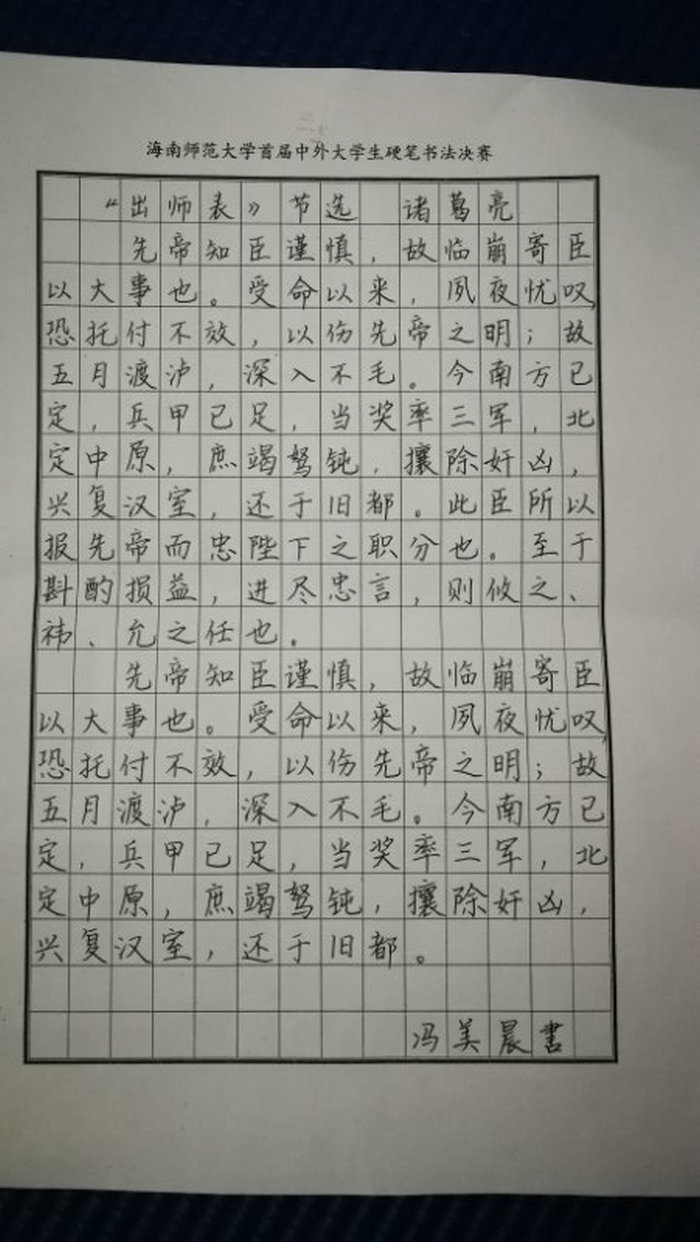 海南师范大学首届中外大学生硬笔书法决赛
“出师表》节选 诸葛亮
先帝知臣谨慎，故临崩寄臣
以大事也。受命以来，夙夜忧叹，
恐托付不效，以伤先帝之明；故
五月渡泸，深入不毛。今南方已
定，兵甲已足，当奖率三军，北
定中原，庶竭驽钝，攘除奸凶，
兴复汉室，还于旧都。此臣所以
报先帝而忠陛下之职分也。至于
斟酌损益，进尽忠言，则攸之、
祎、允之任也。
先帝知臣谨慎，故临崩寄臣
以大事也。受命以来，夙夜忧叹，
恐托付不效，以伤先帝之明；故
五月渡泸，深入不毛。今南方已
定，兵甲已足，当奖率三军，北
定中原，庶竭驽钝，攘除奸凶，
兴复汉室，还于旧都。
冯美晨书